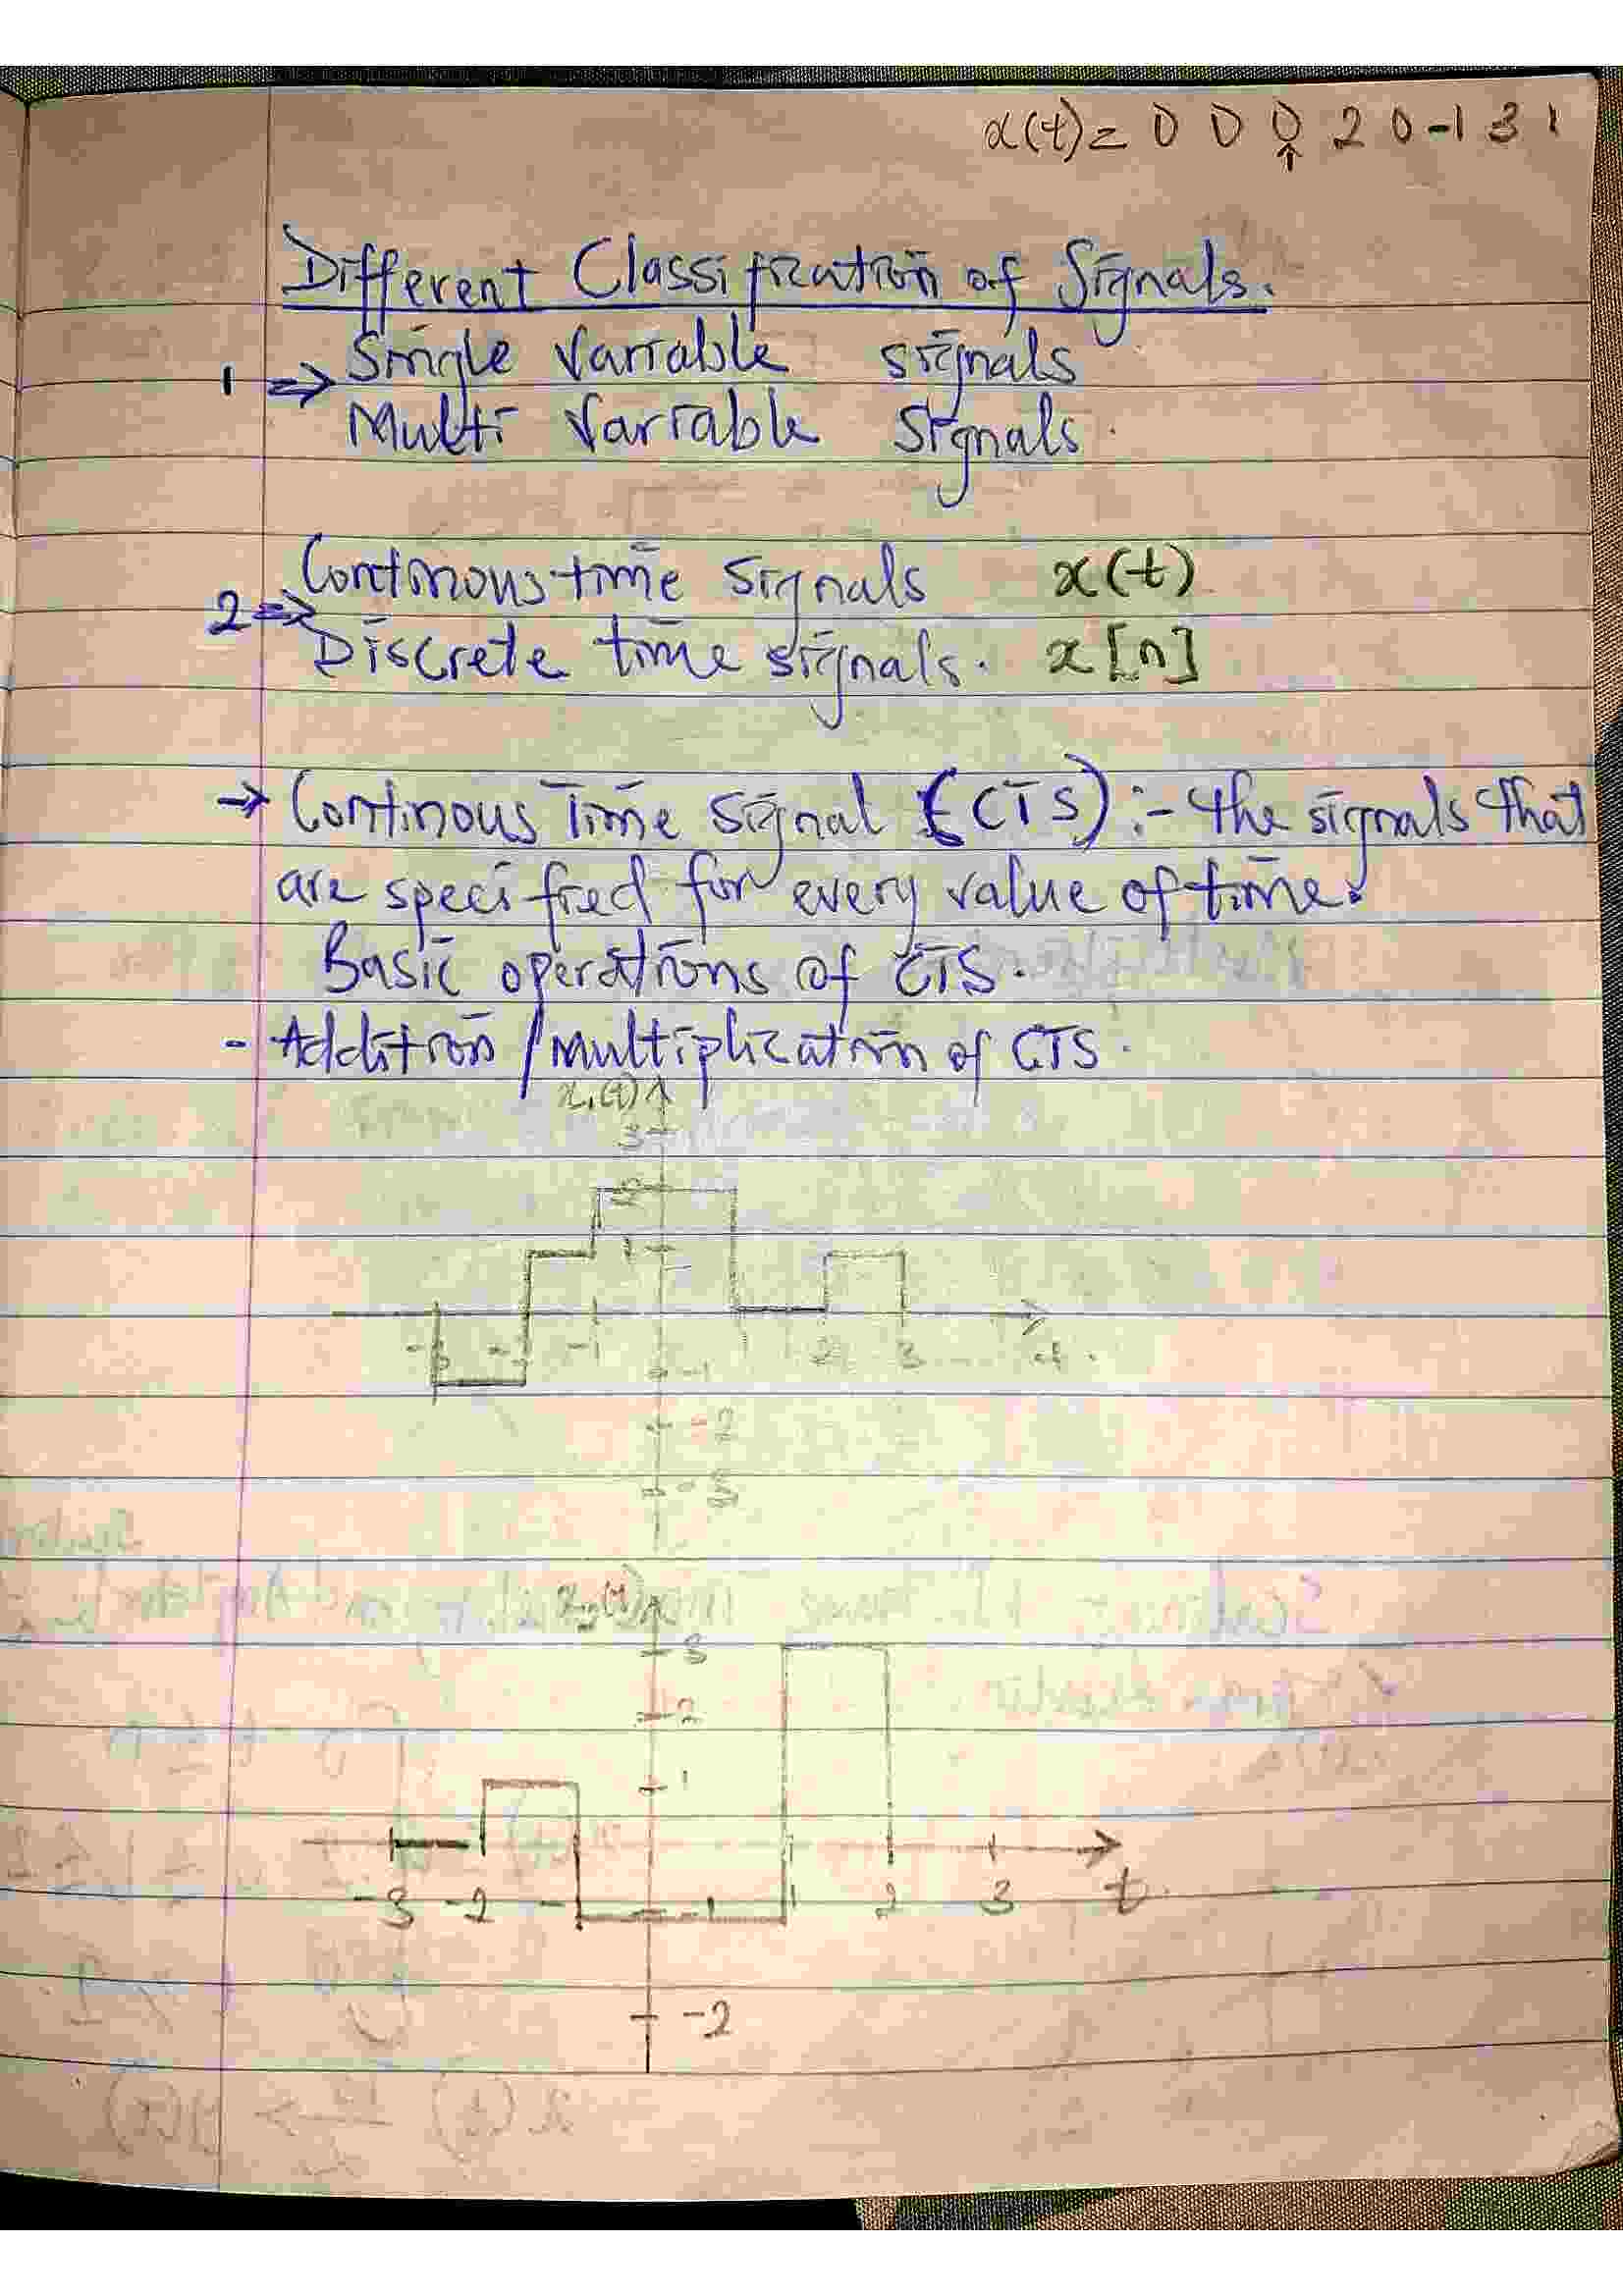 x(t) = 0 0 0 2 0 -1 3 1
↑
Different Classification of Signals.
Single Variable signals
1 ⇒
Multi Variable Signals.
Continous time signals x(t)
2 ⇒
Discrete time signals. x[n]
→ Continous Time Signal (CTS) :- the signals that
are specified for every value of time.
Basic operations of CTS.
- Addition / Multiplication of CTS.
x₁(t)
3
2
1
-3 -2 -1 1 2 3 t.
-1
-2
-3
x₂(t)
3
2
1
-3 -2 - -1 1 2 3 t.
-2